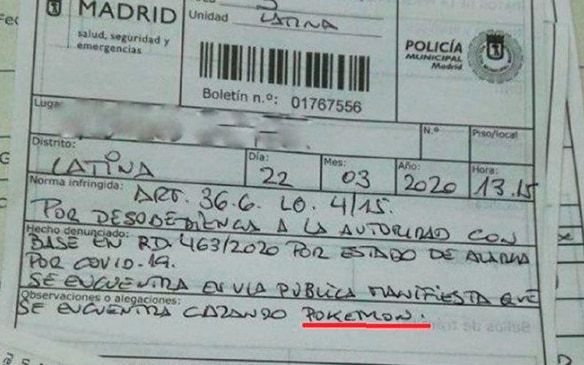 MADRID
salud, seguridad y
emergencias
Unidad LATINA
POLICÍA
MUNICIPAL
Madrid
Boletín n.º: 01767556
Lugar
N.º
Piso/local
Distrito:
LATINA
Día:
22
Mes:
03
Año:
2020
Hora:
13.15
Norma infringida: ART. 36.6. LO. 4/15.
POR DESOBEDIENCIA A LA AUTORIDAD CON
Hecho denunciado:
BASE EN RD. 463/2020 POR ESTADO DE ALARMA
POR COVID-19.
SE ENCUENTRA EN VIA PUBLICA MANIFIESTA QUE
Observaciones o alegaciones:
SE ENCUENTRA CAZANDO POKEMON.